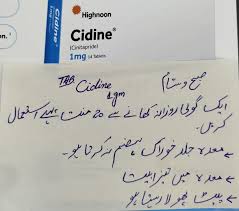 Highnoon
Cidine®
(Cinitapride)
1mg 14 Tablets
Cidine®
1mg
TAB Cidine
1gm
صبح و شام
ایک گولی روزانہ کھانے سے 20 منٹ پہلے استعمال
کریں۔
معدہ جلد خوراک ہضم نہ کرتا ہو
معدہ میں تیزابیت
پیٹ پھولا رہتا ہو